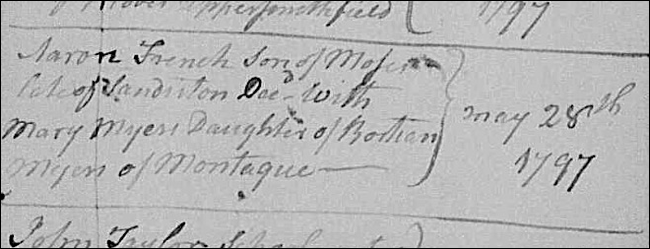 of Uppersmithfield 1797
Aaron French son of Moses
late of Sandiston Decd. With
Mary Myers Daughter of
Myers of Montague —
may 28th
1797
John Taylor